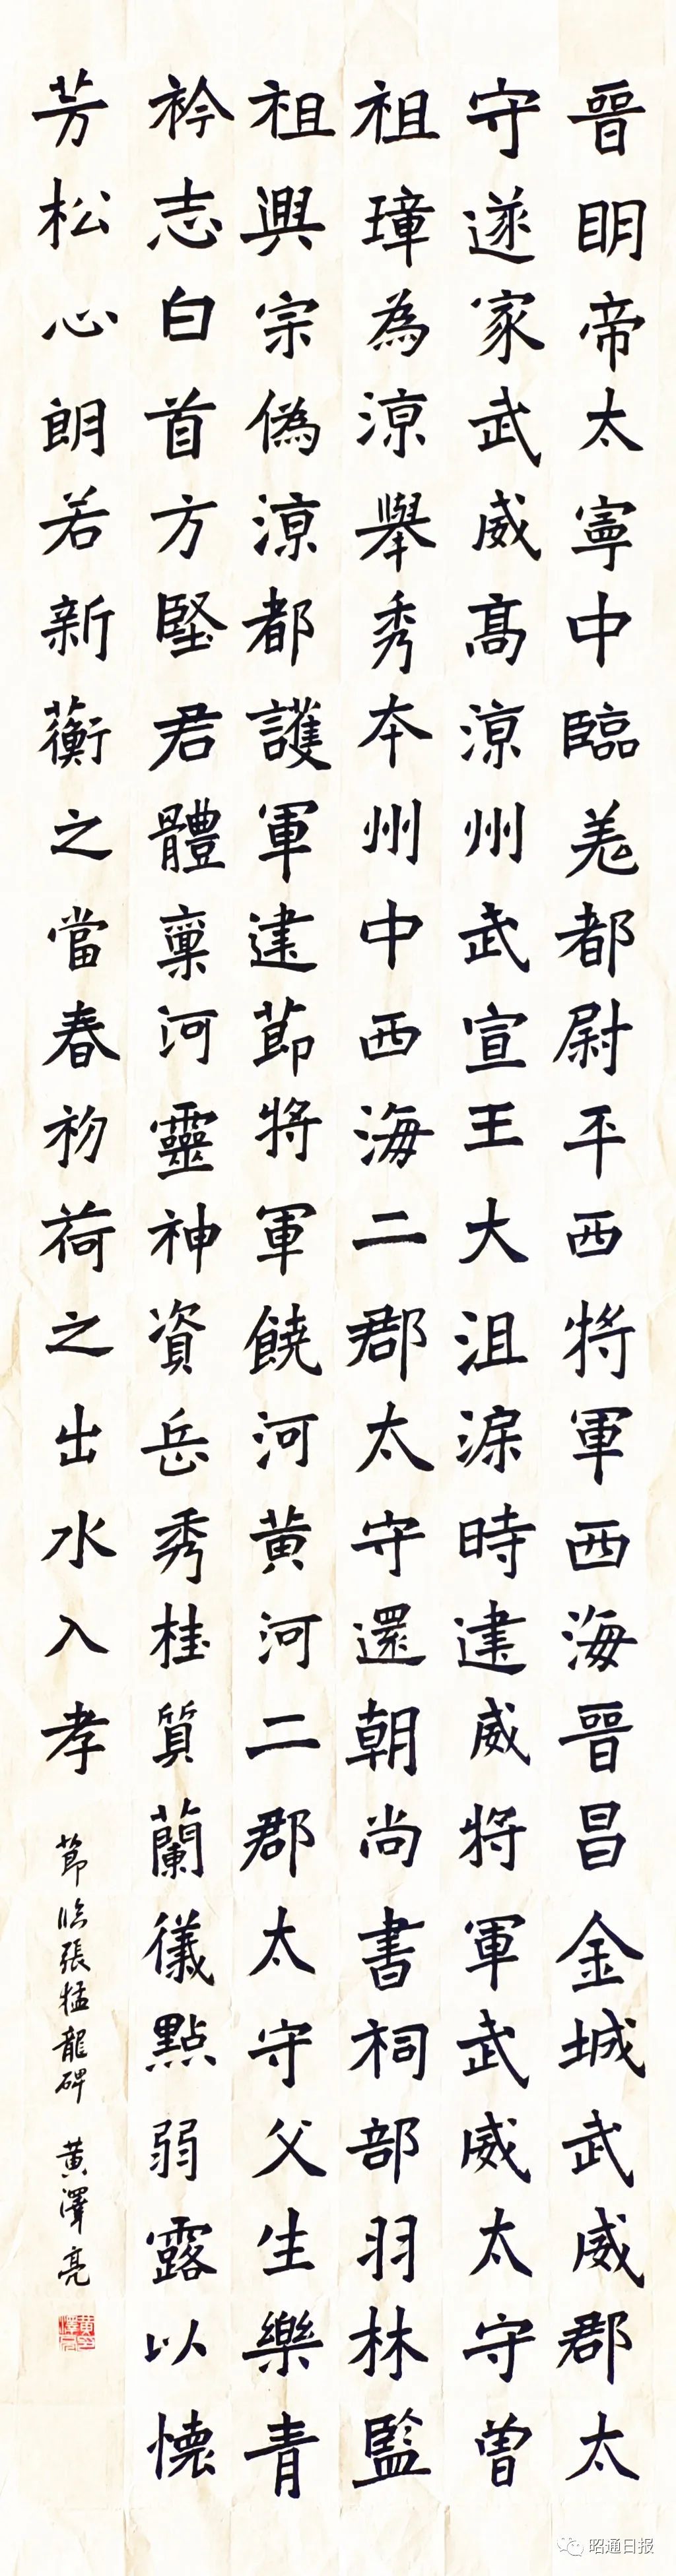 晉明帝太寧中臨羌都尉平西將軍西海晉昌金城武威郡太
守遂家武威高涼州武宣王大沮渠時建威將軍武威太守曾
祖璋為涼舉秀本州中西海二郡太守還朝尚書祠部羽林監
祖興宗偽涼都護軍建節將軍饒河黃河二郡太守父生樂青
衿志白首方堅君體稟河靈神資岳秀桂質蘭儀點弱露以懷
芳松心朗若新蘅之當春初荷之出水入孝
節臨張猛龍碑 黃澤亮
昭通日报